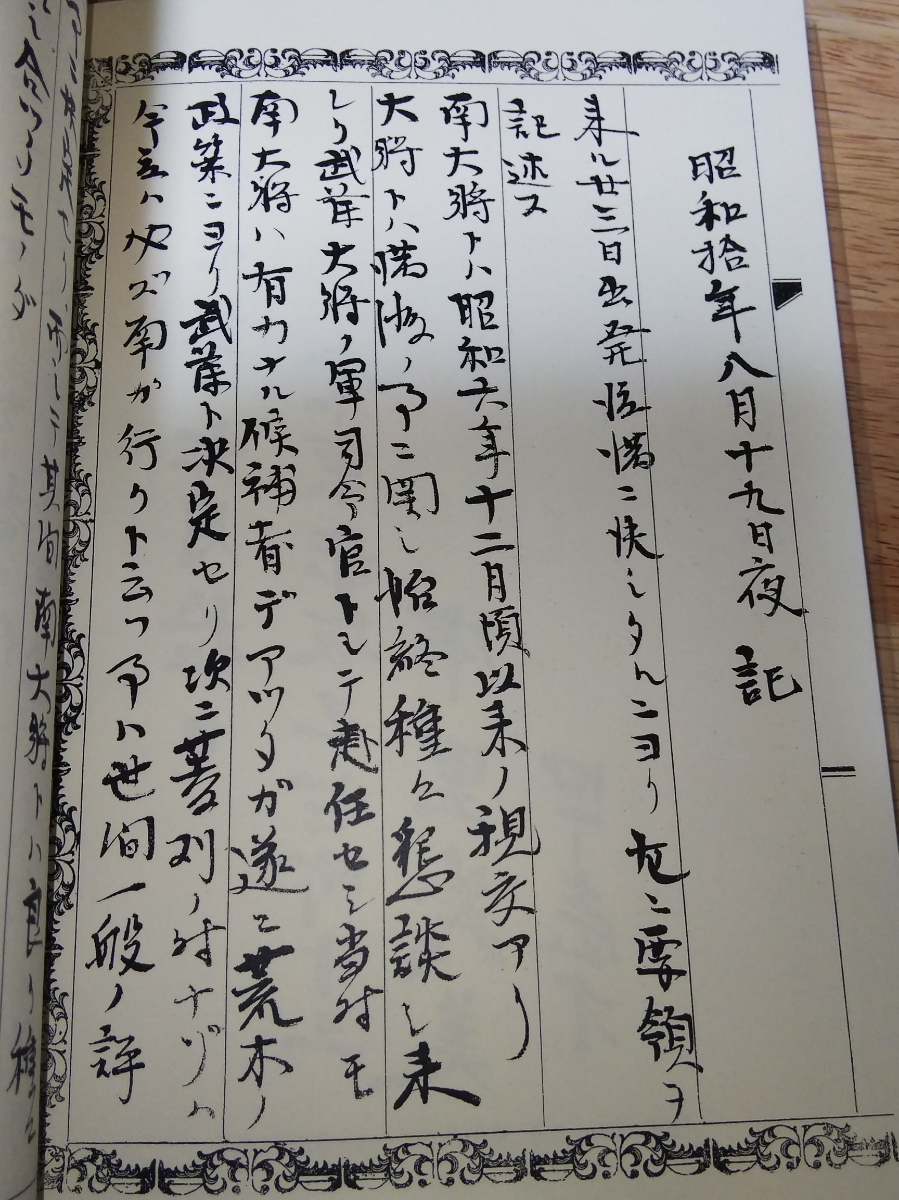 昭和拾年八月十九日夜 記
来ル廿三日出発渡満ニ決シタルニヨリ左ニ要領ヲ
記述ス
南大将トハ昭和六年十二月頃以来ノ親交アリ
大将トハ満洲ノ事ニ関シ始終種々懇談シ来
レリ武藤大将ノ軍司令官トシテ赴任セシ当時モ
南大将ハ有力ナル候補者デアツタガ遂ニ荒木ノ
政策ニヨリ武藤ト決定セリ次ニ菱刈ノ時ナゾハ
今度ハ必ズ南ガ行クト云フ事ハ世間一般ノ評
其間南大将トハ
モノダ